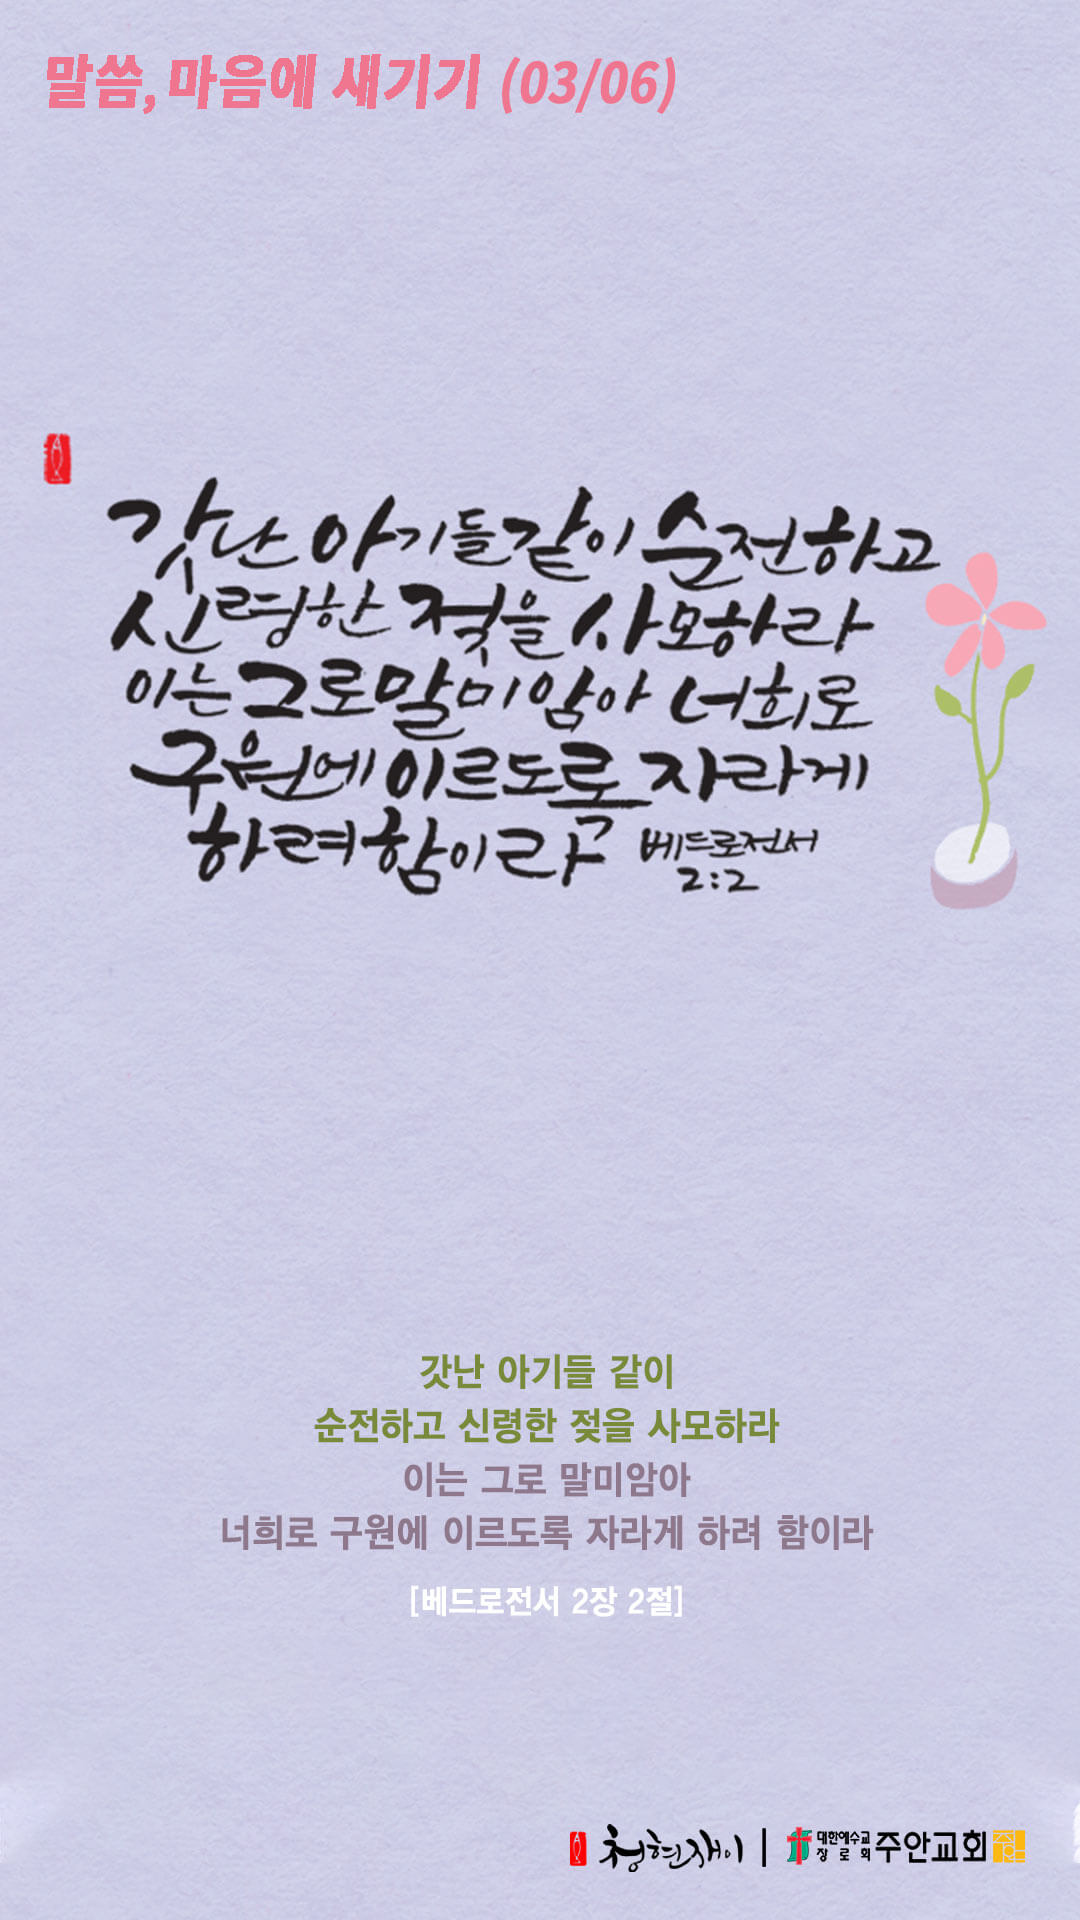 말씀, 마음에 새기기 (03/06)
갓난 아기들같이 순전하고
신령한 젖을 사모하라
이는 그로 말미암아 너희로
구원에 이르도록 자라게
하려 함이라 베드로전서
2:2
갓난 아기들 같이
순전하고 신령한 젖을 사모하라
이는 그로 말미암아
너희로 구원에 이르도록 자라게 하려 함이라
[베드로전서 2장 2절]
청현재이 | 대한예수교 장로회 주안교회